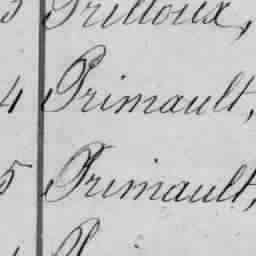 3 Prilloux,
4 Primault,
5 Primault,